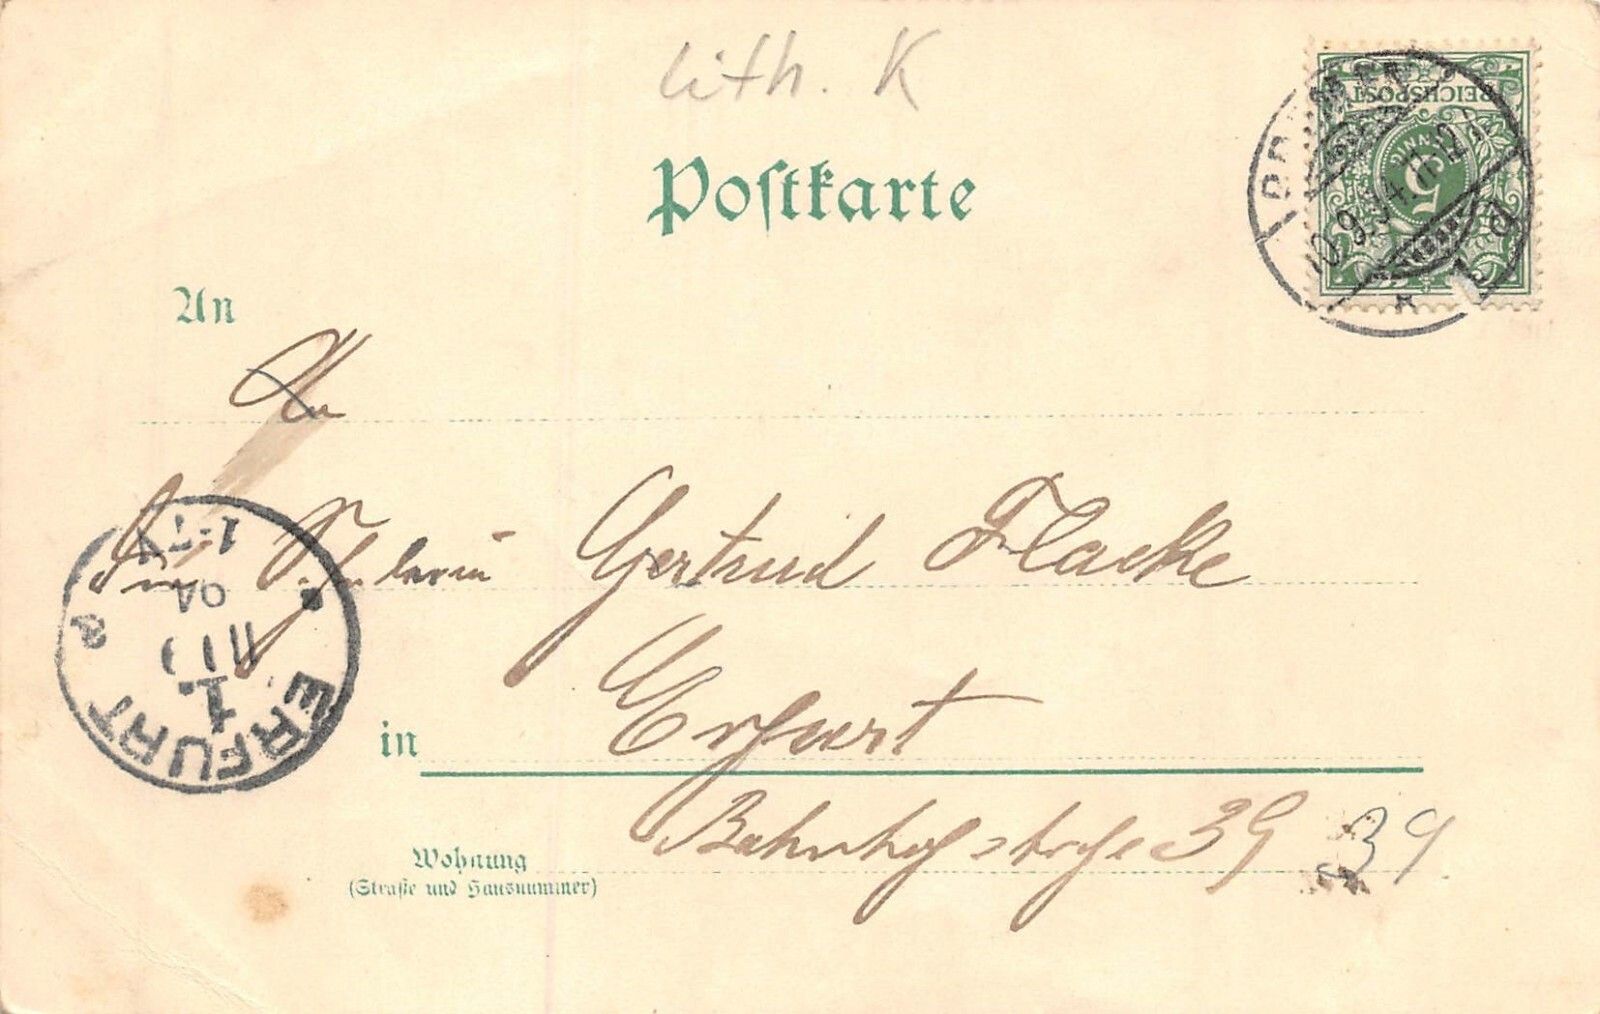 lith. K
Postkarte
REICHSPOST
5
PFENNIG
An
An
Gertrud Flacke
in
Erfurt
Bahnhofstrasse 39
39
Wohnung
(Straße und Hausnummer)
ERFURT
1.